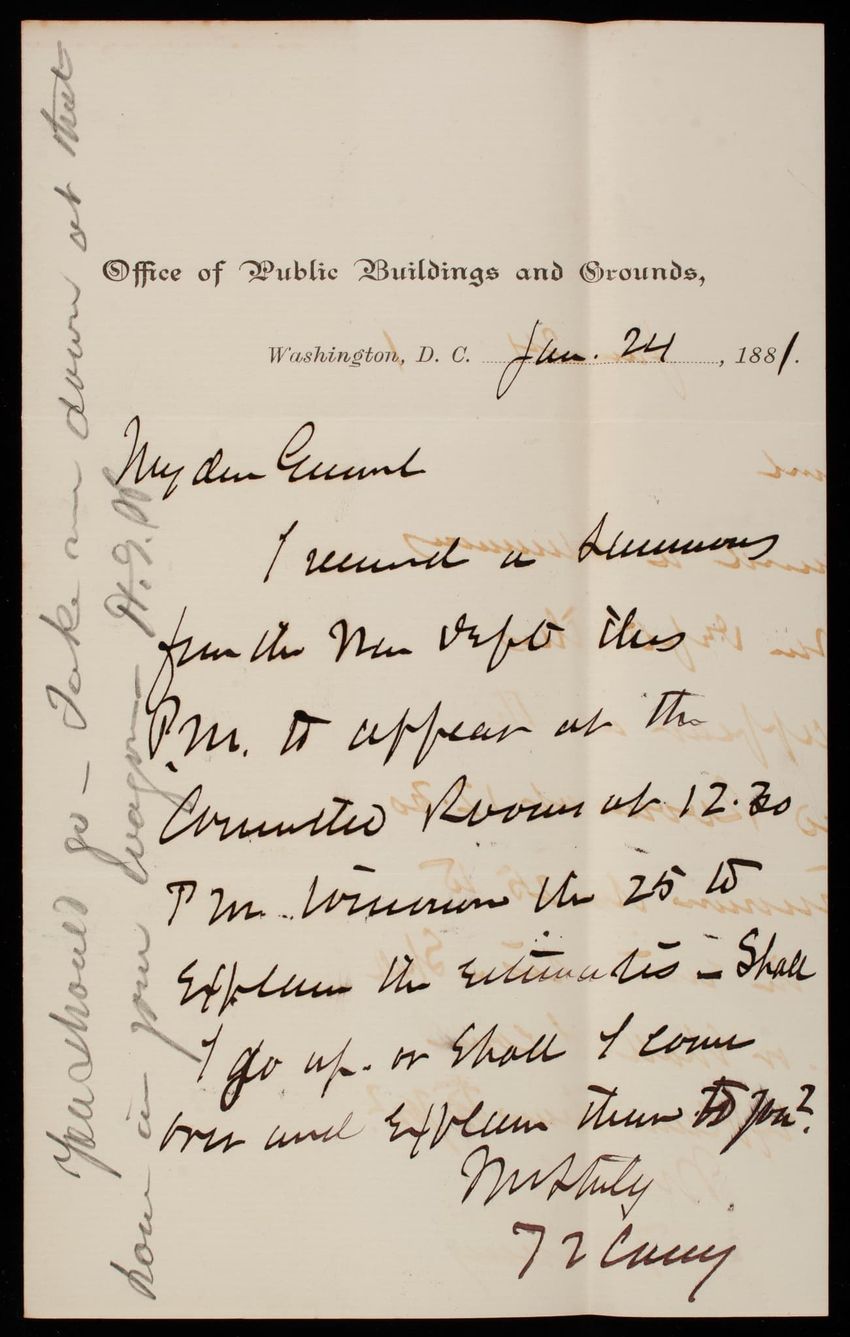 Office of Public Buildings and Grounds,
Washington, D. C. Jan. 24, 1881.
My dear General
I received a summons
from the War Dept this
P.M. to appear at the
Committee Rooms at 12.30
P.M. tomorrow the 25 to
explain the estimates – Shall
I go up. or Shall I come
over and explain them to you?
Truly
T L Casey
You should go – Take me down at that
hour in your wagon – H.G.W